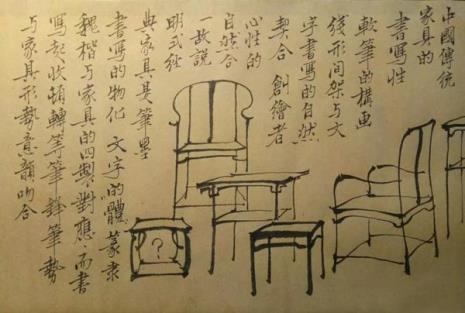 中國傳統
家具的
書寫性
軟筆的構画
线形间架与文
字書寫的自然
契合 創繪者
心性的
自然合
一故說
明式经
典家具是筆墨
書寫的物化 文字的體 篆隶
魏楷与家具的四製對應.而書
寫起收頓轉等筆鋒筆勢
与家具形勢意韻吻合
?